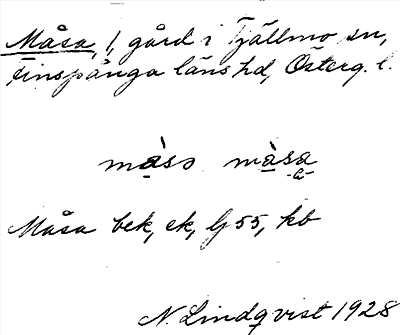 Måsa, 1, gård i Tjällmo sn,
Finspånga läns hd, Österg. l.
mà̱sɔ mà̱sa̱
Måsa bek, ek, G 55, kb
N. Lindqvist 1928